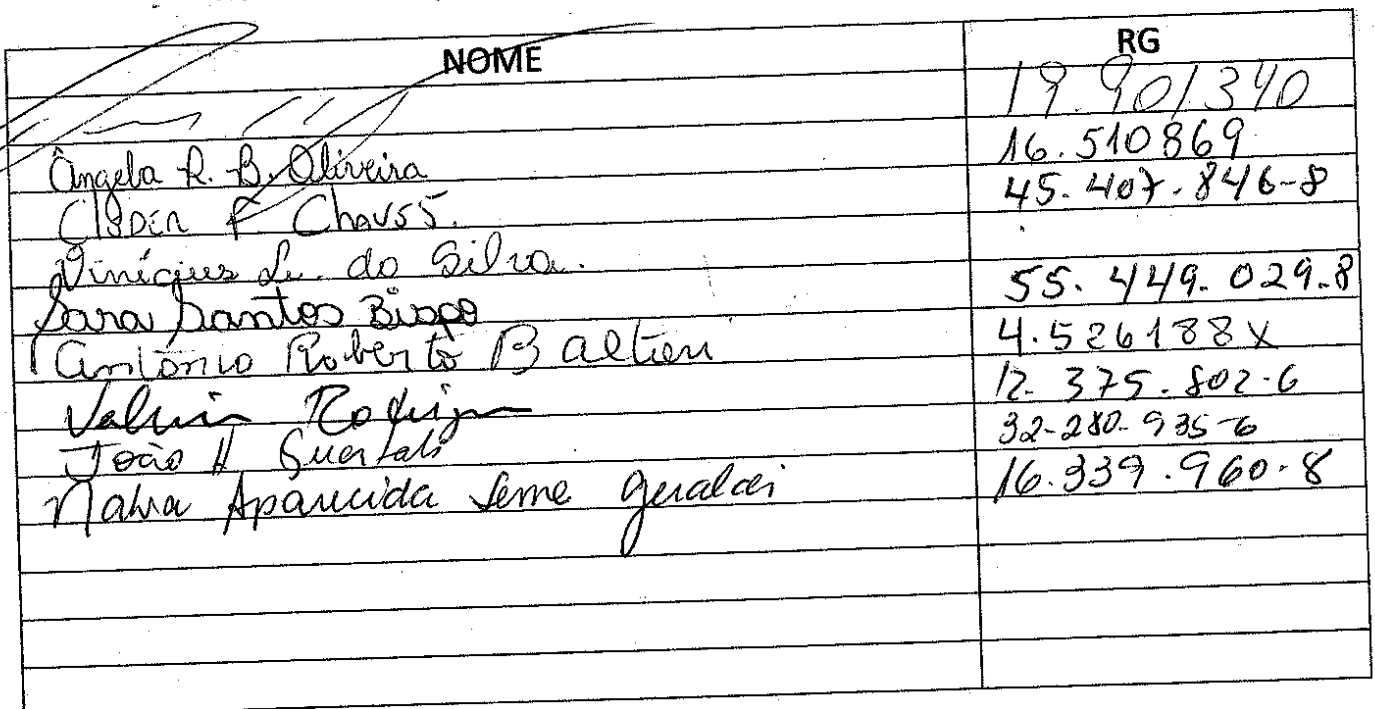 NOME RG
19.901340
Ângela R. B. Oliveira 16.510869
Chaves. 45.407.846-8
Vinícius da Silva.
Sara Santos Bispo 55.449.029-8
Antônio Roberto Baltieri 4.526188X
12.375.802-6
João H 32-280-935-6
Maria Aparecida Leme Geraldi 16.339.960-8